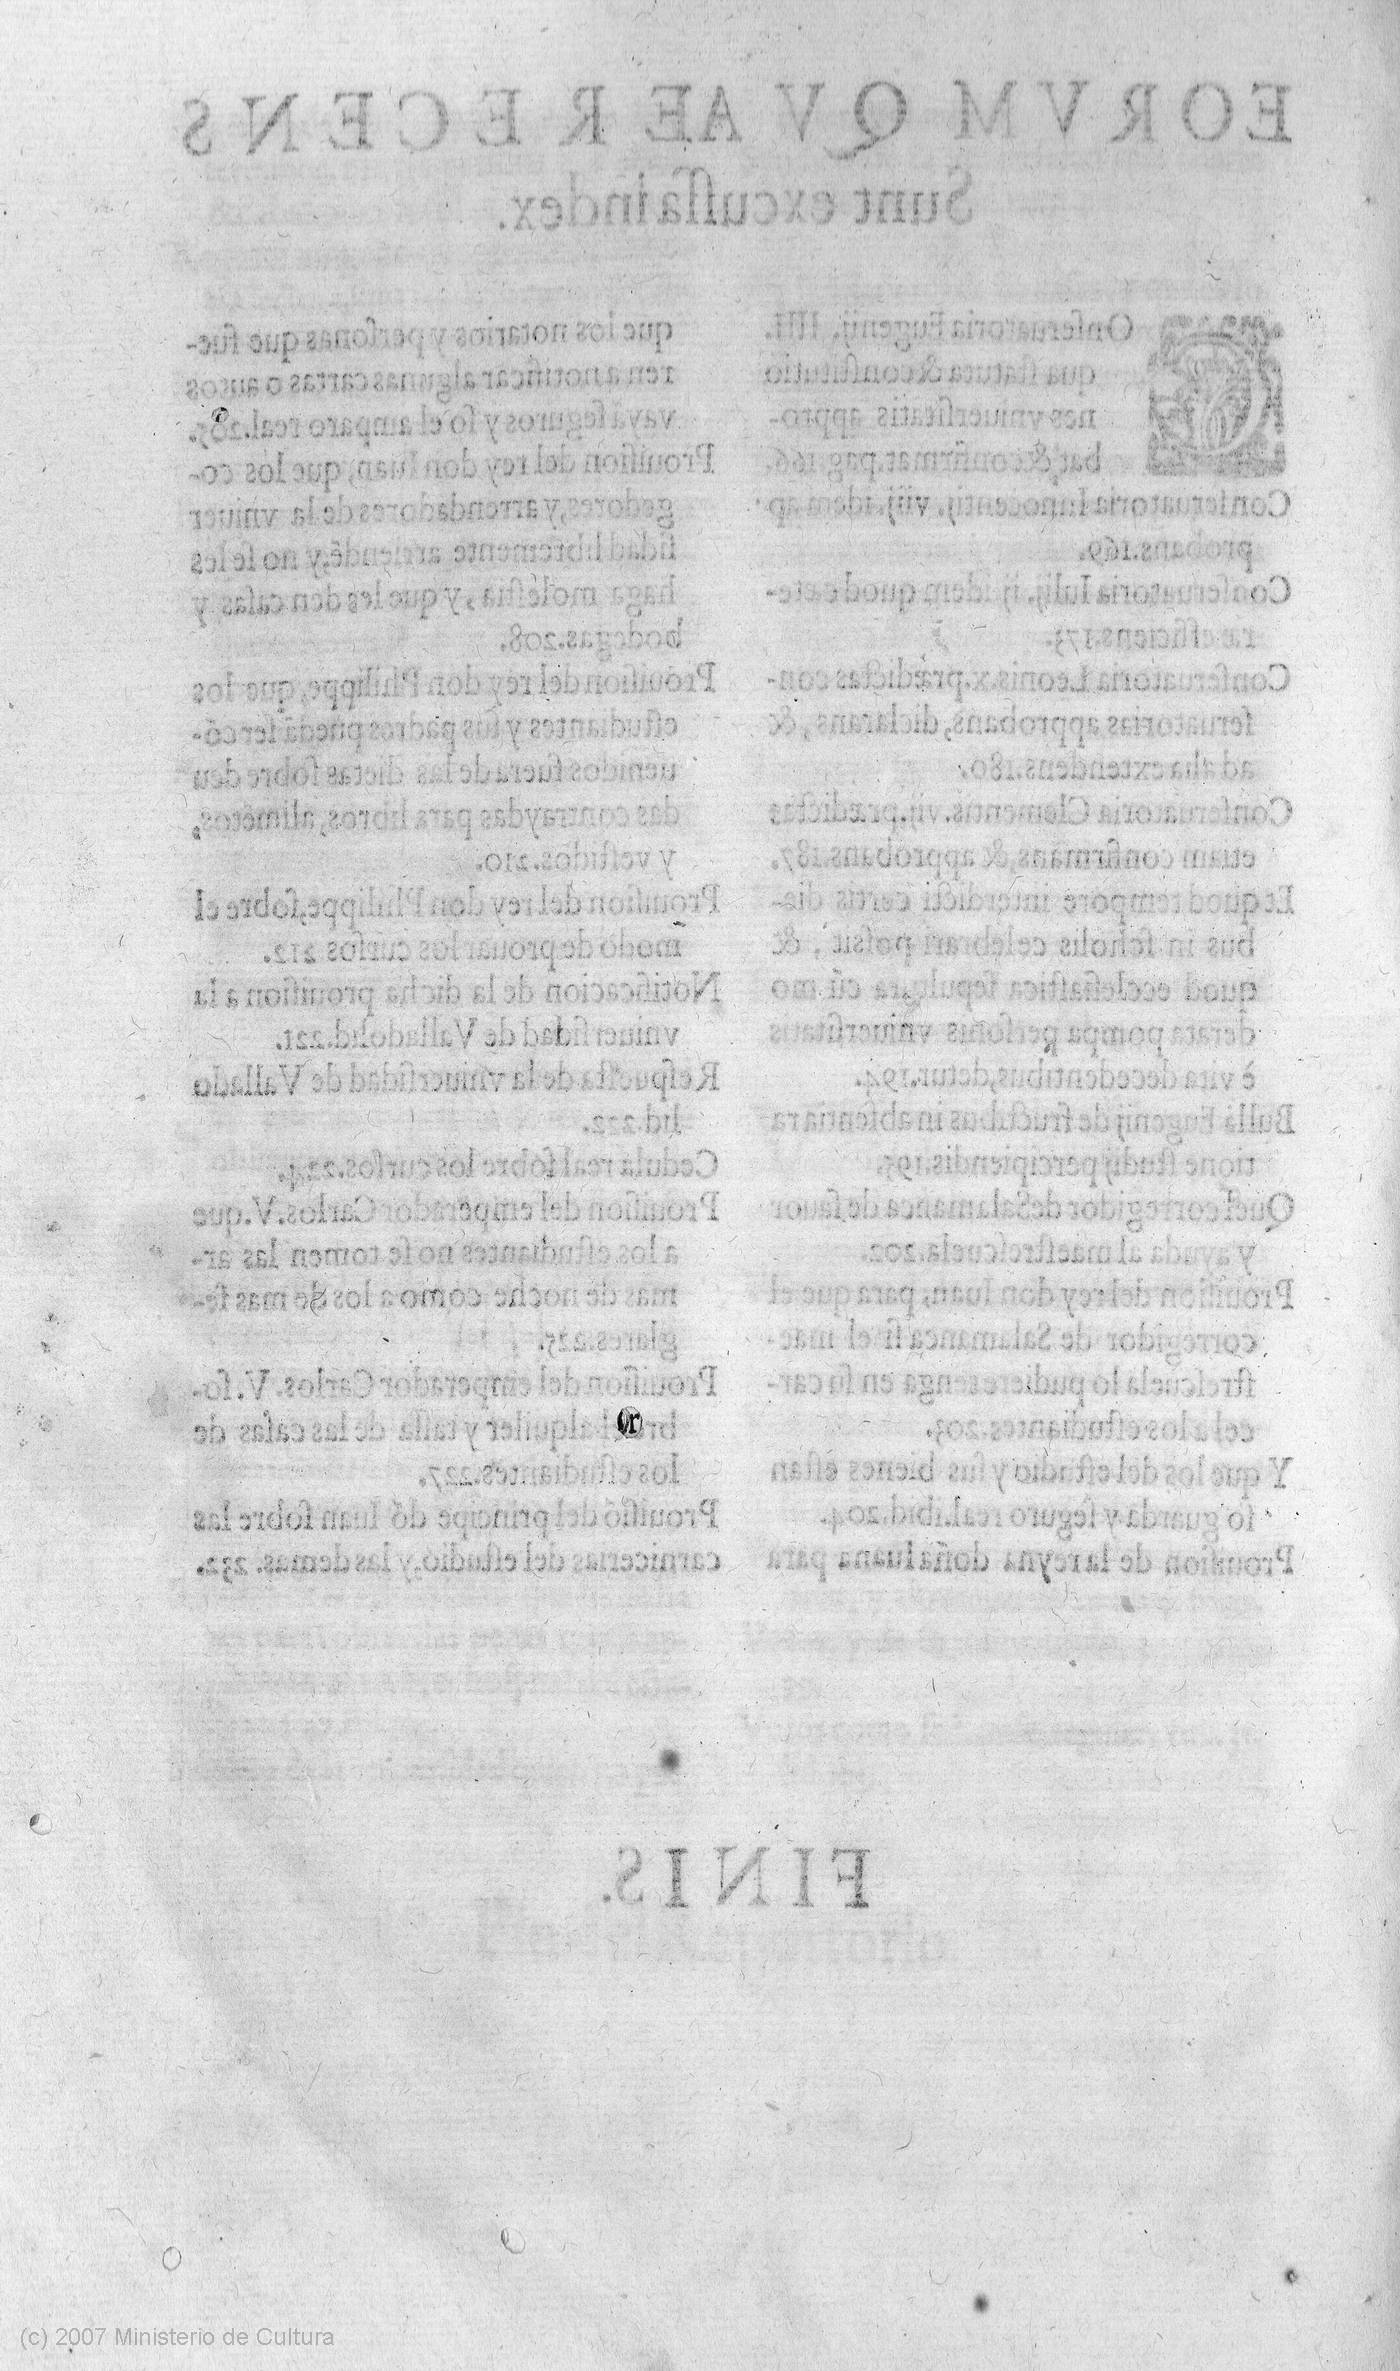 EORVM QVAE RECENS
Sunt excussa index.
COnseruatoria Eugenij. IIII.
qua statuta & constitutio
nes vniuersitatis appro-
bat & confirmat. pag. 166.
Conseruatoria Innocentij. viij. idem ap
probans. 169.
Conseruatoria Iulij. ij. idem quod cæte-
ræ efficiens. 173.
Conseruatoria Leonis. x. prædictas con-
seruatorias approbans, diclarans, &
ad alia extendens. 180.
Conseruatoria Clementis. vij. prædictas
etiam confirmans, & approbans. 187.
Et quod tempore interdicti certis die-
bus in scholis celebrari possit, &
quod ecclesiastica sepultura cū mo
derata pompa personis vniuersitatis
è vita decedentibus, detur. 194.
Bulla Eugenij de fructibus in absentia ra
tione studij percipiendis. 195.
Quel corregidor de Salamanca de fauor
y ayuda al maestrescuela. 202.
Prouision del rey don Iuan, para que el
corregidor de Salamanca si el mae-
strescuela lo pudiere tenga en su car-
cel a los estudiantes. 203.
Y que los del estudio y sus bienes estan
so guarda y seguro real. ibid. 204.
Prouision de la reyna doña Iuana para
que los notarios y personas que fue-
ren a notificar algunas cartas o autos
vayā seguros y so el amparo real. 205.
Prouision del rey don Iuan, que los co-
gedores, y arrendadores de la vniuer
sidad libremente arriendē, y no se les
haga molestia, y que les den casas y
bodegas. 208.
Prouision del rey don Philippe, que los
estudiantes y sus padres puedā ser cō-
uenidos fuera de las dietas sobre deu
das contraydas para libros, alimētos,
y vestidos. 210.
Prouision del rey don Philippe, sobre el
modo de prouar los cursos 212.
Notificacion de la dicha prouision a la
vniuersidad de Valladolid. 221.
Respuesta de la vniuersidad de Vallado
lid. 222.
Cedula real sobre los cursos. 224.
Prouision del emperador Carlos. V. que
a los estudiantes no se tomen las ar-
mas de noche como a los de mas se-
glares. 225.
Prouision del emperador Carlos. V. so-
bre el alquiler y tassa de las casas de
los estudiantes. 227.
Prouisiō del principe dō Iuan sobre las
carnicerias del estudio, y las demas. 232.
FINIS.
(c) 2007 Ministerio de Cultura